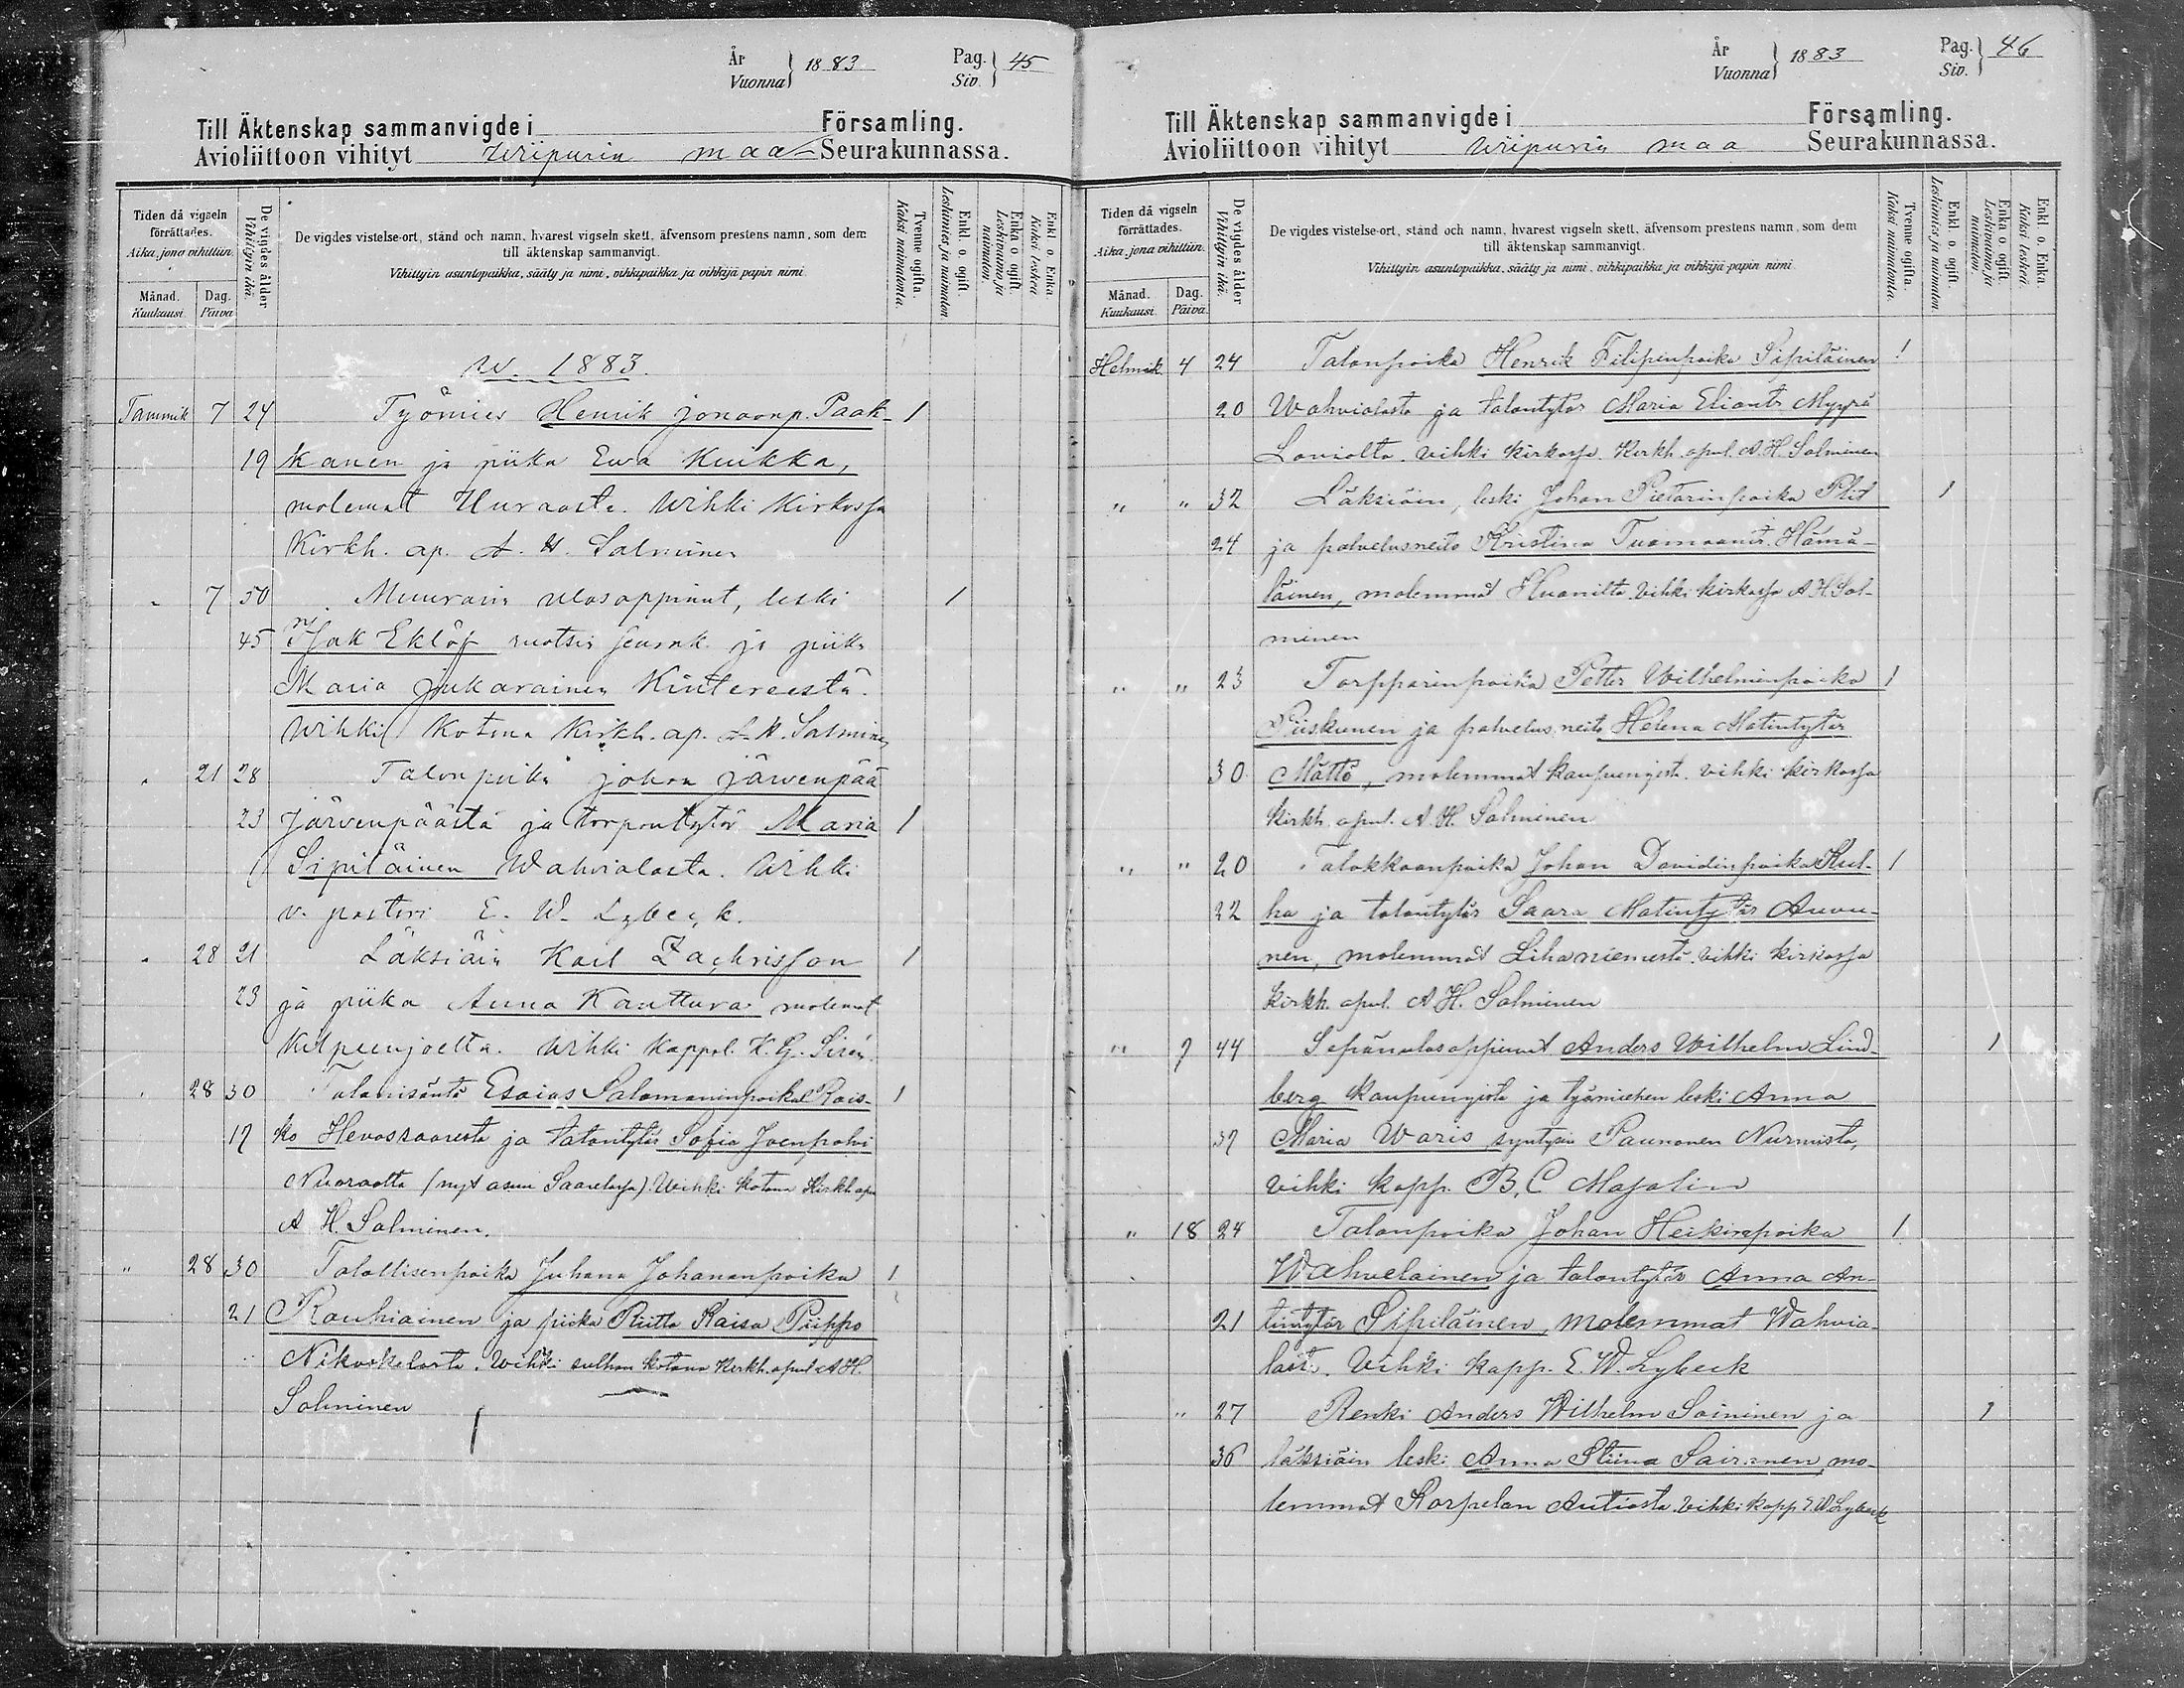 År
Vuonna 1883
Pag.
Siv. 45
Till Äktenskap sammanvigde i Församling.
Avioliittoon vihityt Wiipurin maa- Seurakunnassa.
Tiden då vigseln förrättades.
Aika, jona vihittiin.
Månad.
Kuukausi.
Dag.
Päivä.
De vigdes ålder
Vihittyin ikä.
De vigdes vistelse-ort, stånd och namn, hvarest vigseln skett, äfvensom prestens namn, som dem
till äktenskap sammanvigt.
Vihittyin asuntopaikka, sääty ja nimi, vihkipaikka ja vihkijä papin nimi.
Tvenne ogifta.
Kaksi naimatonta.
Enkl. o. ogift.
Leskimies ja naimaton.
Enka o. ogift.
Leskivaimo ja naimaton.
Enkl o. Enka.
Kaksi leskeä.
w. 1883.
Tammik 7 24 Työmies Henrik Jonaanp. Paak- 1
19 kanen ja piika Ewa Kuikka,
molemat Uuraasta. Wihki Kirkossa
Kirkh. ap. A. H. Salminen
" 7 50 Muurarin ulosoppinut, leski 1
45 Isak Eklöf ruotsin seurak. ja piika
Maria Jukarainen Kintereestä.
Wihki Kotona Kirkh. ap. A. H. Salminen
" 21 28 Talonpoika Johan Järwenpää
23 Järwenpäästä ja torpantytär Maria 1
Sipiläinen Wahvialasta. Wihki
v. pastori E. W. Lybeck.
" 28 21 Läksiäin Karl Zachrisson 1
23 ja piika Anna Kanttura molemat
Kilpeenjoelta. Wihki Kappal. K. G. Sirén.
" 28 30 Talonisäntä Esaias Salomaninpoika Rais- 1
17 ko Hevossaaresta ja talontytär Sofia Joenpolvi
Nuoraalta (nyt asuu Saarelassa). Wihki kotona Kirkh apu
A H. Salminen.
" 28 30 Talollisenpoika Juhana Johananpoika 1
21 Rouhiainen ja piika Riitta Kaisa Piippo
Nikvokelasta. Wihki sulhon kotona Kirkh. apul A H.
Salminen
År
Vuonna 1883
Pag.
Siv. 46
Till Äktenskap sammanvigde i Församling.
Avioliittoon vihityt Wiipurin maa Seurakunnassa.
Tiden då vigseln förrättades.
Aika, jona vihittiin.
Månad.
Kuukausi.
Dag.
Päivä.
De vigdes ålder
Vihittyin ikä.
De vigdes vistelse-ort, stånd och namn, hvarest vigseln skett, äfvensom prestens namn, som dem
till äktenskap sammanvigt.
Vihittyin asuntopaikka, sääty ja nimi, vihkipaikka ja vihkijä-papin nimi.
Tvenne ogifta.
Kaksi naimatonta.
Enkl. o. ogift.
Leskimies ja naimaton.
Enka o. ogift.
Leskivaimo ja naimaton.
Enkl. o. Enka.
Kaksi leskeä.
Helmik 4 24 Talonpoika Henrik Filipinpoika Sipiläinen 1
20 Wahvialasta ja talontytär Maria Eliantr Myyrä
Laviolta. vihki kirkossa. Kirkh. apul. A. H. Salminen
" " 32 Läksiäin, leski Johan Pietarinpoika Plit 1
24 ja palvelusneito Kristina Tuomaantr. Hämä-
läinen, molemmat Huanilta vihki kirkossa A H. Sal-
minen
" " 23 Torpparinpoika Petter Wilhelminpoika 1
Piiskunen ja palvelus neito Helena Matintytär
30 Mättö, molemmat kaupungista. vihki kirkossa
kirkh. apul. A. H. Salminen
" " 20 Talokkaanpoika Johan Davidinpoika Kul- 1
22 ha ja talontytär Saara Matintytär Auvu-
nen, molemmat Lihaniemestä. vihki kirkossa
kirkh. apul. A H. Salminen
" 7 44 Sepänulosoppinut Anders Wilhelm Lind- 1
berg Kaupungista ja työmiehen leski Anna
37 Maria Waris syntysin Paunonen Nurmista,
vihki kapp. B. C Majalin
" 18 24 Talonpoika Johan Heikinpoika 1
Wahvelainen ja talontytär Anna An-
21 tintytär Sipiläinen, molemmat Wahvia-
lasta. Vihki kapp. E. W. Lybeck
" 27 Renki Anders Wilhelm Soininen ja 1
36 läksiäin leski Anna Stiina Sairanen, mo-
lemmat Karpelan Autiosta vihki kapp E. W Lybeck